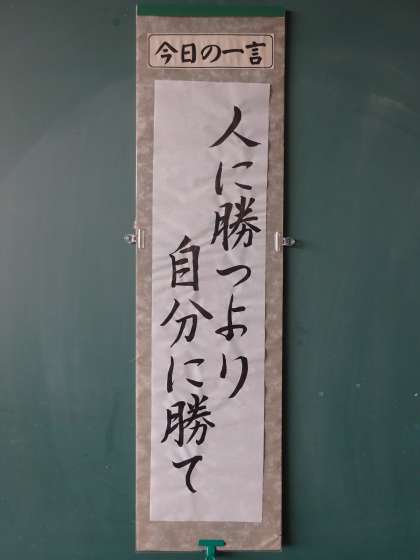 今日の一言
人に勝つより
自分に勝て